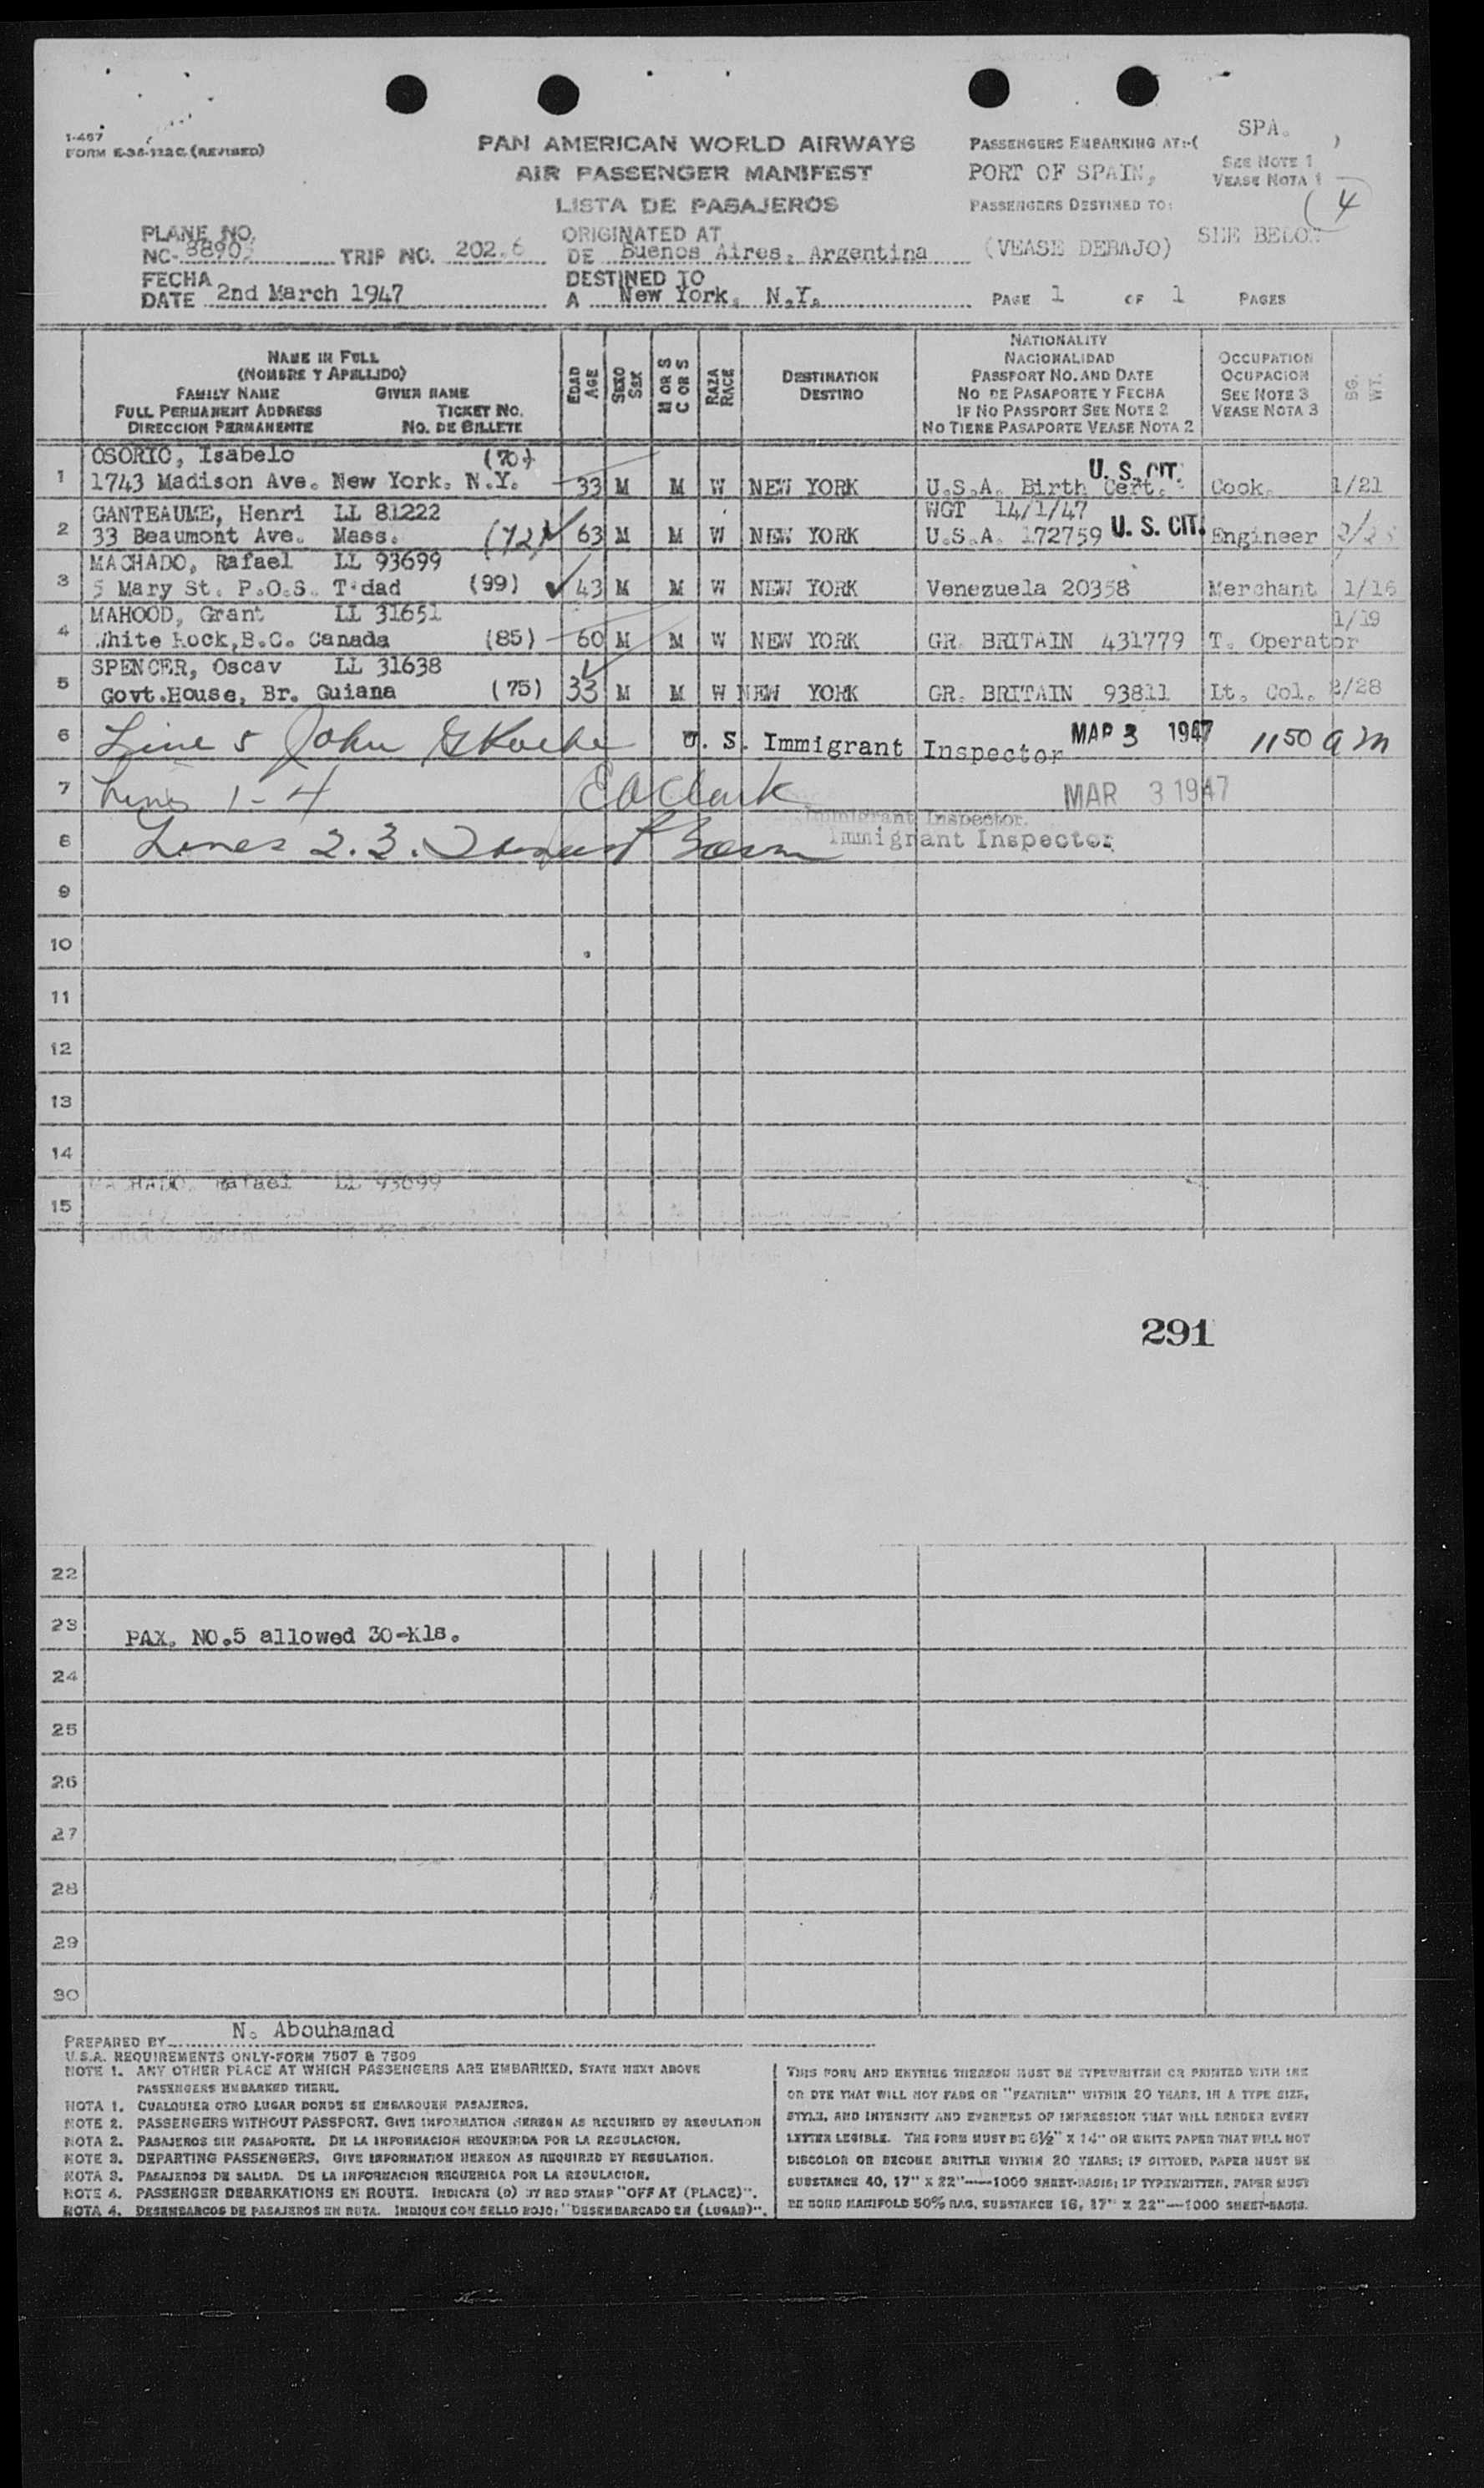 I-467
FORM E-36-122C (REVISED)
PAN AMERICAN WORLD AIRWAYS
AIR PASSENGER MANIFEST
LISTA DE PASAJEROS
PASSENGERS EMBARKING AT:-( SPA. )
PORT OF SPAIN,
SEE NOTE 1
VEASE NOTA 1
PASSENGERS DESTINED TO:
(4
(VEASE DEBAJO) SEE BELOW
PLANE NO.
NC- TRIP NO. 202.6
ORIGINATED AT
DE Buenos Aires, Argentina
FECHA
DATE 2nd March 1947
DESTINED TO
A New York, N.Y.
PAGE 1 OF 1 PAGES
NAME IN FULL
(NOMBRE Y APELLIDO)
FAMILY NAME GIVEN NAME
FULL PERMANENT ADDRESS TICKET NO.
DIRECCION PERMANENTE NO. DE BILLETE
EDAD
AGE
SEXO
SEX
M OR S
C OR S
RAZA
RACE
DESTINATION
DESTINO
NATIONALITY
NACIONALIDAD
PASSPORT NO. AND DATE
NO DE PASAPORTE Y FECHA
IF NO PASSPORT SEE NOTE 2
NO TIENE PASAPORTE VEASE NOTA 2
OCCUPATION
OCUPACION
SEE NOTE 3
VEASE NOTA 3
BG.
WT.
OSORIO, Isabelo (70)
1 1743 Madison Ave. New York. N.Y. 33 M M W NEW YORK U.S.A. Birth Cert. U. S. CIT. Cook. 1/21
GANTEAUME, Henri LL 81222 WGT 14/1/47
2 33 Beaumont Ave. Mass. (72) 63 M M W NEW YORK U.S.A. 172759 U. S. CIT. Engineer
MACHADO, Rafael LL 93699
3 5 Mary St. P.O.S. T'dad (99) 43 M M W NEW YORK Venezuela 20358 Merchant 1/16
MAHOOD, Grant LL 31651 1/19
4 White Rock,B.C. Canada (85) 60 M M W NEW YORK GR. BRITAIN 431779 T. Operator
SPENCER, Oscav LL 31638
5 Govt.House, Br. Guiana (75) 33 M M W NEW YORK GR. BRITAIN 93811 Lt. Col. 2/28
6 Line 5 John U. S. Immigrant Inspector MAR 3 1947 1150 am
7 Lines 1-4 E O Clark MAR 3 1947
Immigrant Inspector.
8 Lines 2.3. Immigrant Inspector
9
10
11
12
13
14
MACHADO, Rafael LL 93699
15
291
22
23 PAX. NO.5 allowed 30-Kls.
24
25
26
27
28
29
30
PREPARED BY N. Abouhamad
U.S.A. REQUIREMENTS ONLY-FORM 7507 & 7509
NOTE 1. ANY OTHER PLACE AT WHICH PASSENGERS ARE EMBARKED, STATE NEXT ABOVE
PASSENGERS EMBARKED THERE.
NOTA 1. CUALQUIER OTRO LUGAR DONDE SE EMBARQUEN PASAJEROS.
NOTE 2. PASSENGERS WITHOUT PASSPORT. GIVE INFORMATION HEREON AS REQUIRED BY REGULATION
NOTA 2. PASAJEROS SIN PASAPORTE. DE LA INFORMACION REQUERIDA POR LA REGULACION.
NOTE 3. DEPARTING PASSENGERS. GIVE INFORMATION HEREON AS REQUIRED BY REGULATION.
NOTA 3. PASAJEROS DE SALIDA. DE LA INFORMACION REQUERIDA POR LA REGULACION.
NOTE 4. PASSENGER DEBARKATIONS EN ROUTE. INDICATE (D) BY RED STAMP "OFF AT (PLACE)".
NOTA 4. DESEMBARCOS DE PASAJEROS EN RUTA. INDIQUE CON SELLO ROJO: "DESEMBARCADO EN (LUGAR)".
THIS FORM AND ENTRIES THEREON MUST BE TYPEWRITTEN OR PRINTED WITH INK
OR DYE THAT WILL NOT FADE OR "FEATHER" WITHIN 20 YEARS, IN A TYPE SIZE,
STYLE, AND INTENSITY AND EVENNESS OF IMPRESSION THAT WILL RENDER EVERY
LETTER LEGIBLE. THE FORM MUST BE 8½" X 14" ON WHITE PAPER THAT WILL NOT
DISCOLOR OR BECOME BRITTLE WITHIN 20 YEARS; IF DITTOED, PAPER MUST BE
SUBSTANCE 40, 17" X 22"—1000 SHEET-BASIS; IF TYPEWRITTEN, PAPER MUST
BE BOND MANIFOLD 50% RAG, SUBSTANCE 16, 17" X 22"—1000 SHEET-BASIS.